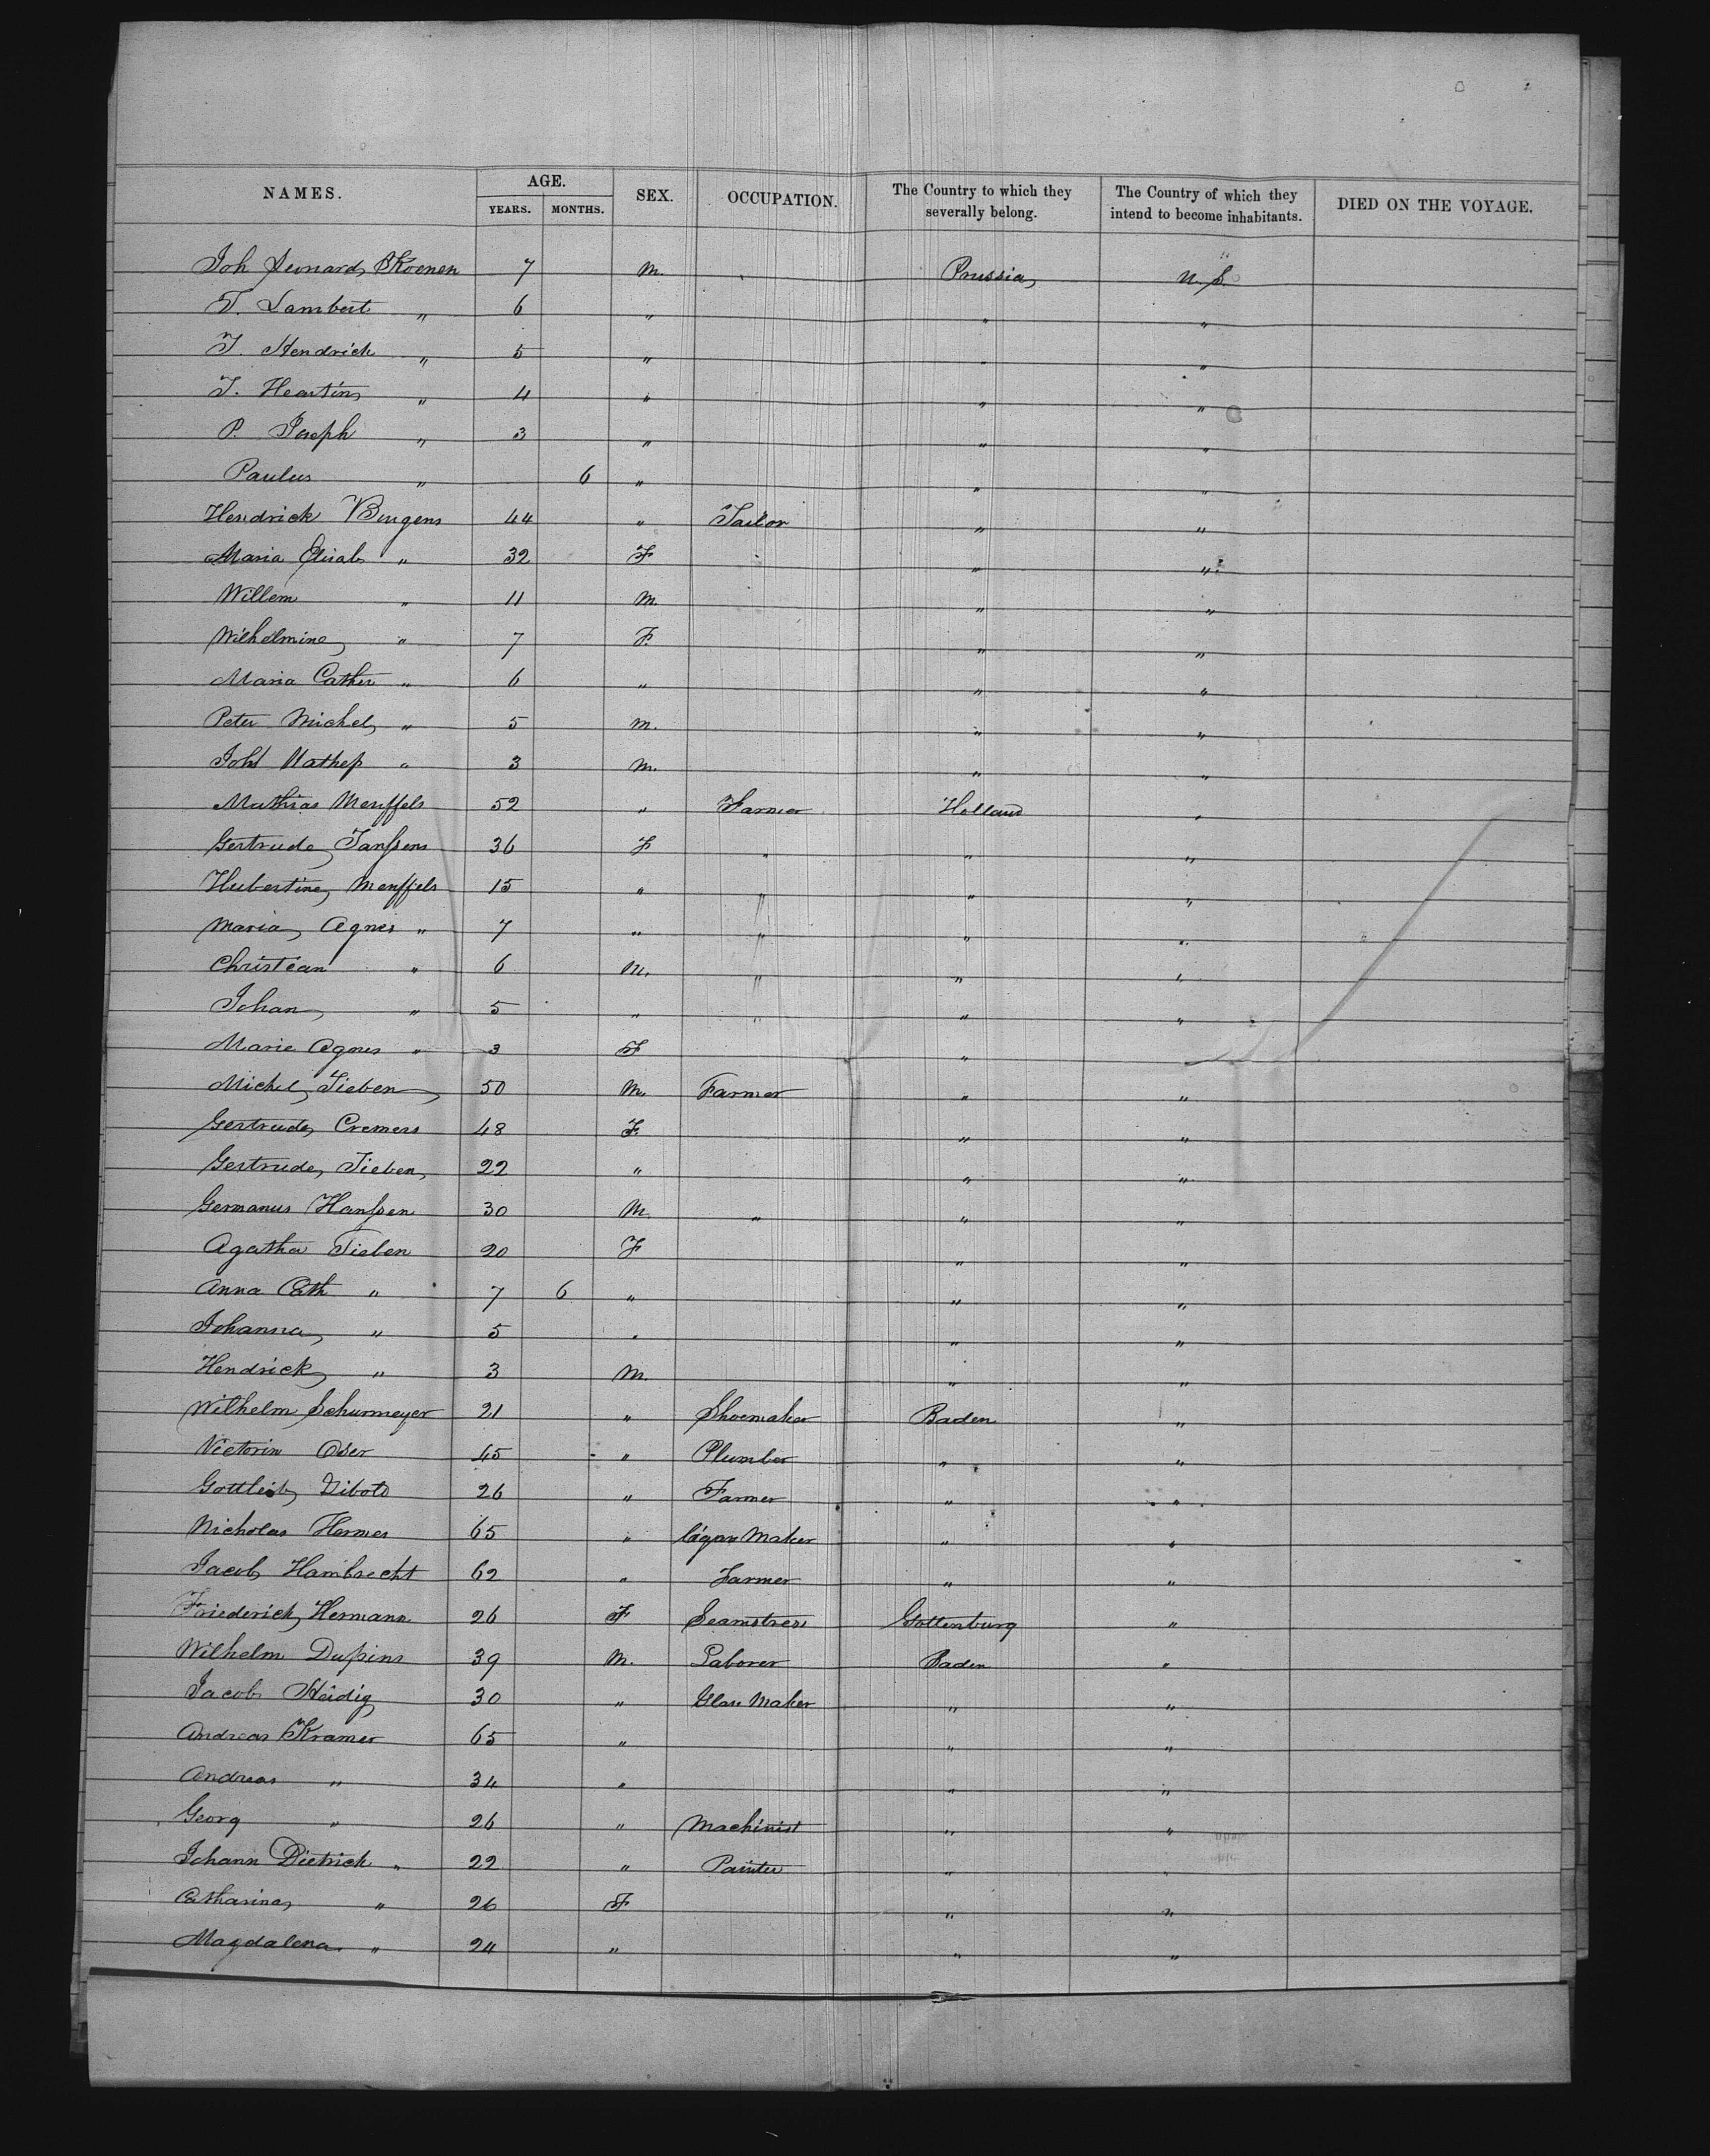 NAMES. AGE. SEX. OCCUPATION. The Country to which they severally belong. The Country of which they intend to become inhabitants. DIED ON THE VOYAGE.
YEARS. MONTHS.
Joh Leonard Koenen 7 M. Prussia U.S.
T. Lambert " 6 " " "
J. Hendrick " 5 " " "
J. Heartin " 4 " " "
P. Joseph " 3 " " "
Paulus " 6 " " "
Hendrick Bingens 44 " Tailor " "
Maria Elisab " 32 F " "
Willem " 11 M. " "
Wilhelmine " 7 F. " "
Maria Cather " 6 " " "
Peter Michel " 5 M. " "
Joh Mathep " 3 M. " "
Mathias Menffels 52 " Farmer Holland "
Gertrude Janssens 36 F " " "
Hubertine Menffels 15 " " " "
Maria Agnes " 7 " " " "
Christian " 6 M. " " "
Johan " 5 " " " "
Marie Agnes " 3 F " "
Michel Tieben 50 M. Farmer " "
Gertrude Cremers 48 F. " "
Gertrude Tieben 22 " " "
Germanus Hanssen 30 M. " " "
Agatha Tieben 20 F " "
Anna Cath " 7 6 " " "
Johanna " 5 " " "
Hendrick " 3 M. " "
Wilhelm Schurmeyer 21 " Shoemaker Baden "
Victorin Oser 45 " Plumber " "
Gottlieb Dibold 26 " Farmer " "
Nicholas Hermes 65 " Cigar Maker " "
Jacob Hambrecht 62 " Farmer " "
Friederich Hermann 26 F Seamstress Gottenburg "
Wilhelm Dupins 39 M. Laborer Baden "
Jacob Heidig 30 " Glass Maker " "
Andreas Kramer 65 " " "
Andreas " 34 " " "
Georg " 26 " Machinist " "
Johann Dietrich " 22 " Painter " "
Catharina " 26 F " "
Magdalena " 24 " " "